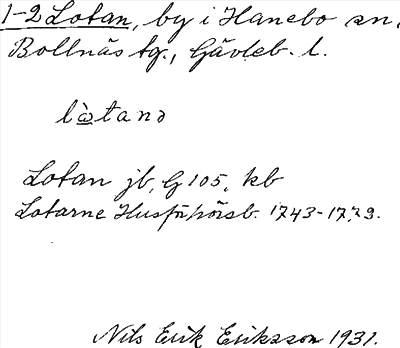 1-2 Lotan, by i Hanebo sn,
Bollnäs tg., Gävleb. l.
lòtanə
Lotan jb, G 105, kb
Lotarne Husförhörsb. 1743-1779.
Nils Erik Eriksson 1931.